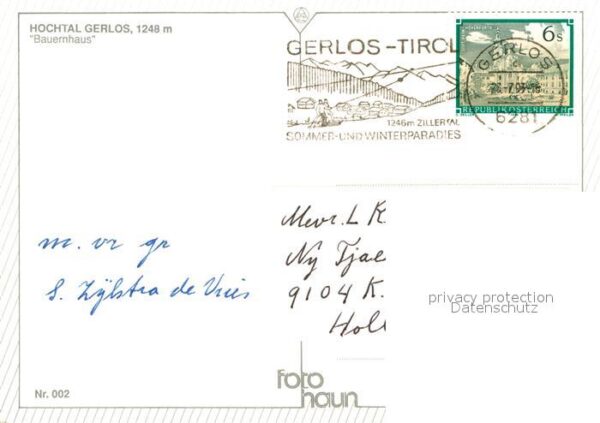 HOCHTAL GERLOS, 1248 m
"Bauernhaus"
GERLOS-TIROL
1246m ZILLERTAL
SOMMER-UND WINTERPARADIES
6s
REPUBLIK ÖSTERREICH
GERLOS
6281
m. vr gr
S. Zijlstra de Vries
Mevr. L K
Ny Tjae
9104 K.
Hol
privacy protection
Datenschutz
Nr. 002
foto
haun